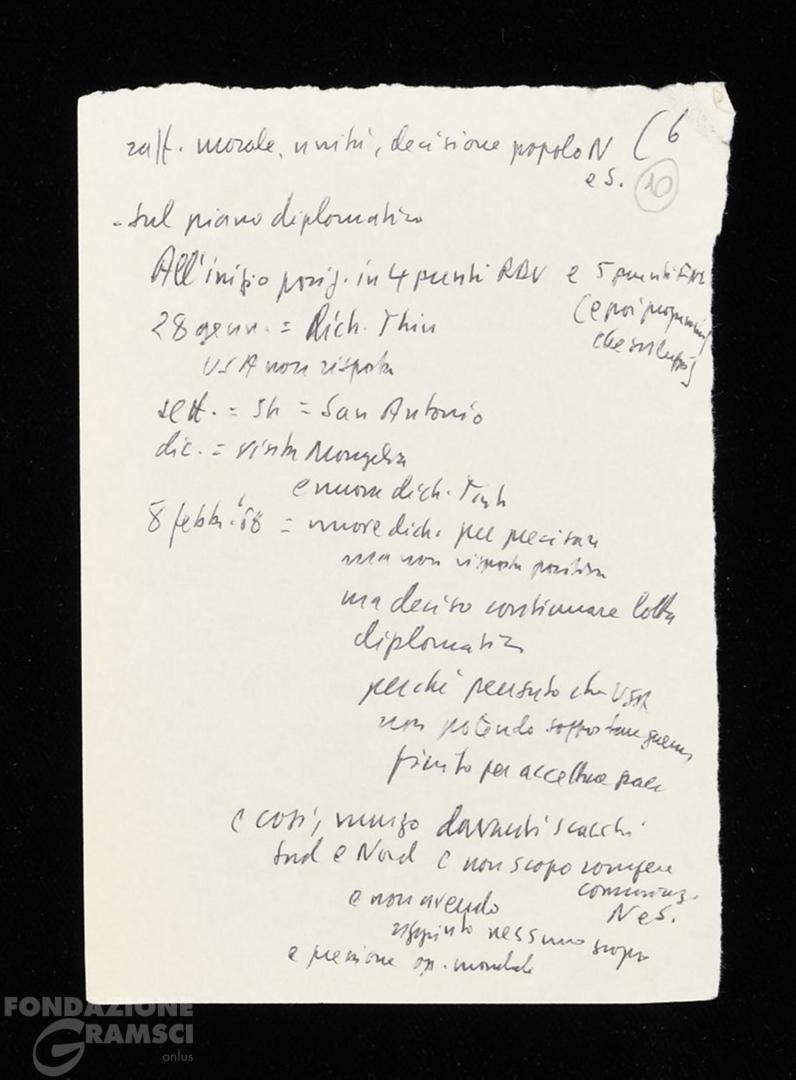 raff. morale, unità, decisione popolo N (6
e S. 10
- sul piano diplomatico
All'inizio posiz. in 4 punti RDV e 5 punti FNL
(e poi programma
che sviluppa)
28 genn. = Dich. Trinh
USA non risposta
sett. = Jh = San Antonio
dic. = visita Mongolia
e nuova dich. Trinh
8 febbr. '68 = nuove dich. per precisare
ma non risposta positiva
ma deciso continuare lotta
diplomatica
perché pensato che USA
non potendo sopportare guerra
finito per accettare
e così, davanti scacchi
Sud e Nord e non scopo rompere
comunicaz.
N e S.
e non avendo
raggiunto nessuno scopo
e pressione op. mondiale
FONDAZIONE
GRAMSCI
onlus